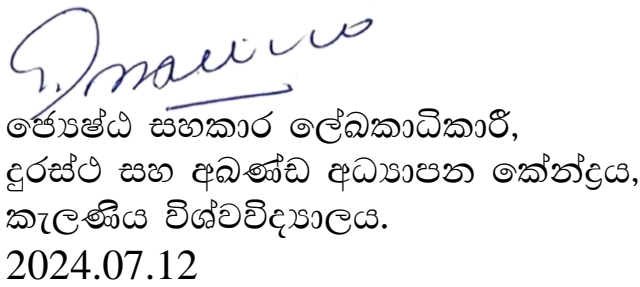 ජ්‍යෙෂ්ඨ සහකාර ලේඛකාධිකාරී,
දුරස්ථ සහ අඛණ්ඩ අධ්‍යාපන කේන්ද්‍රය,
කැලණිය විශ්වවිද්‍යාලය.
2024.07.12